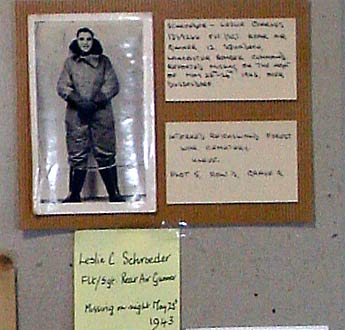 SCHROEDER - LESLIE CHARLES,
FLT/SGT. REAR AIR
GUNNER 12 SQUADRON,
LANCASTER BOMBER COMMAND.
REPORTED MISSING ON THE NIGHT
OF MAY 25TH-26TH 1943, OVER
DUSSELDORF.
INTERRED REICHSWALD FOREST
WAR CEMETERY,
PLOT 5, ROW
Leslie C Schroeder
Flt/Sgt. Rear Air Gunner
Missing on night May 25th
1943